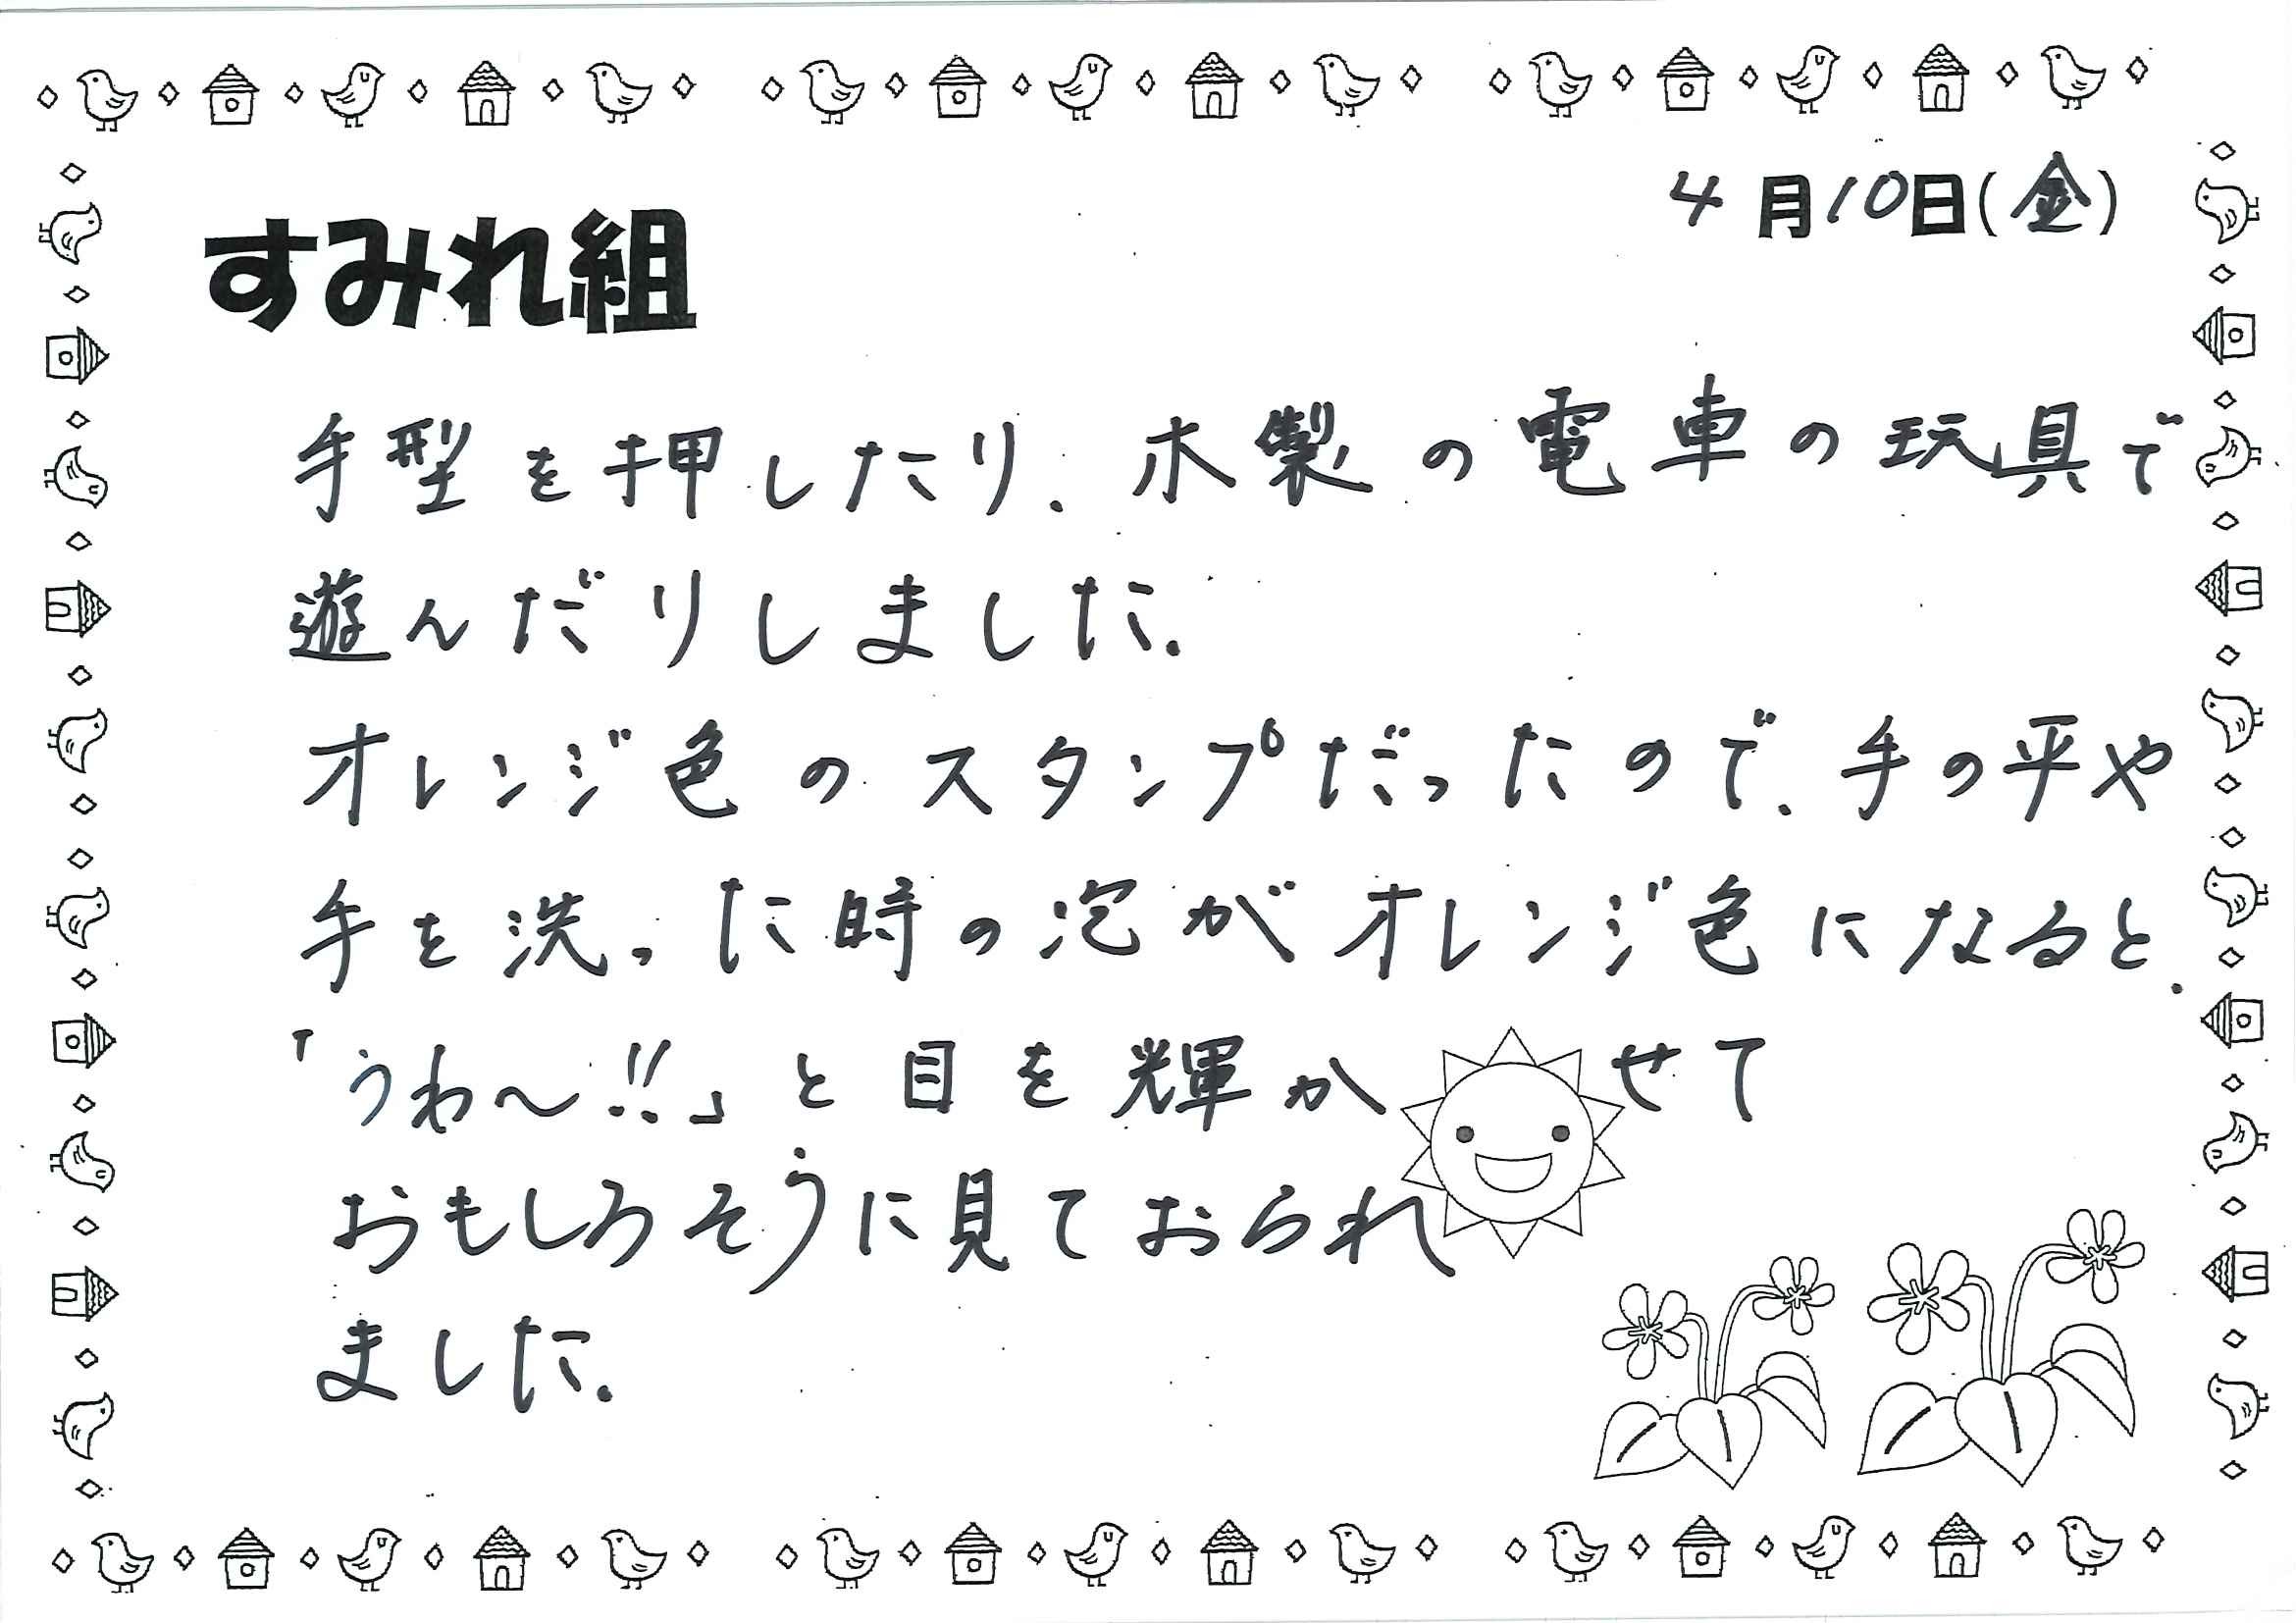 4月10日(金)
すみれ組
手型を押したり、木製の電車の玩具で
遊んだりしました。
オレンジ色のスタンプだったので、手の平や
手を洗った時の泡がオレンジ色になると、
「うわ～!!」と目を輝かせて
おもしろそうに見ておられ
ました。